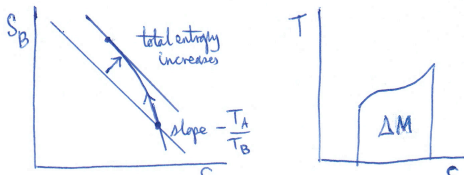 S_B
total entropy
increases
slope - T_A/T_B
T
ΔM